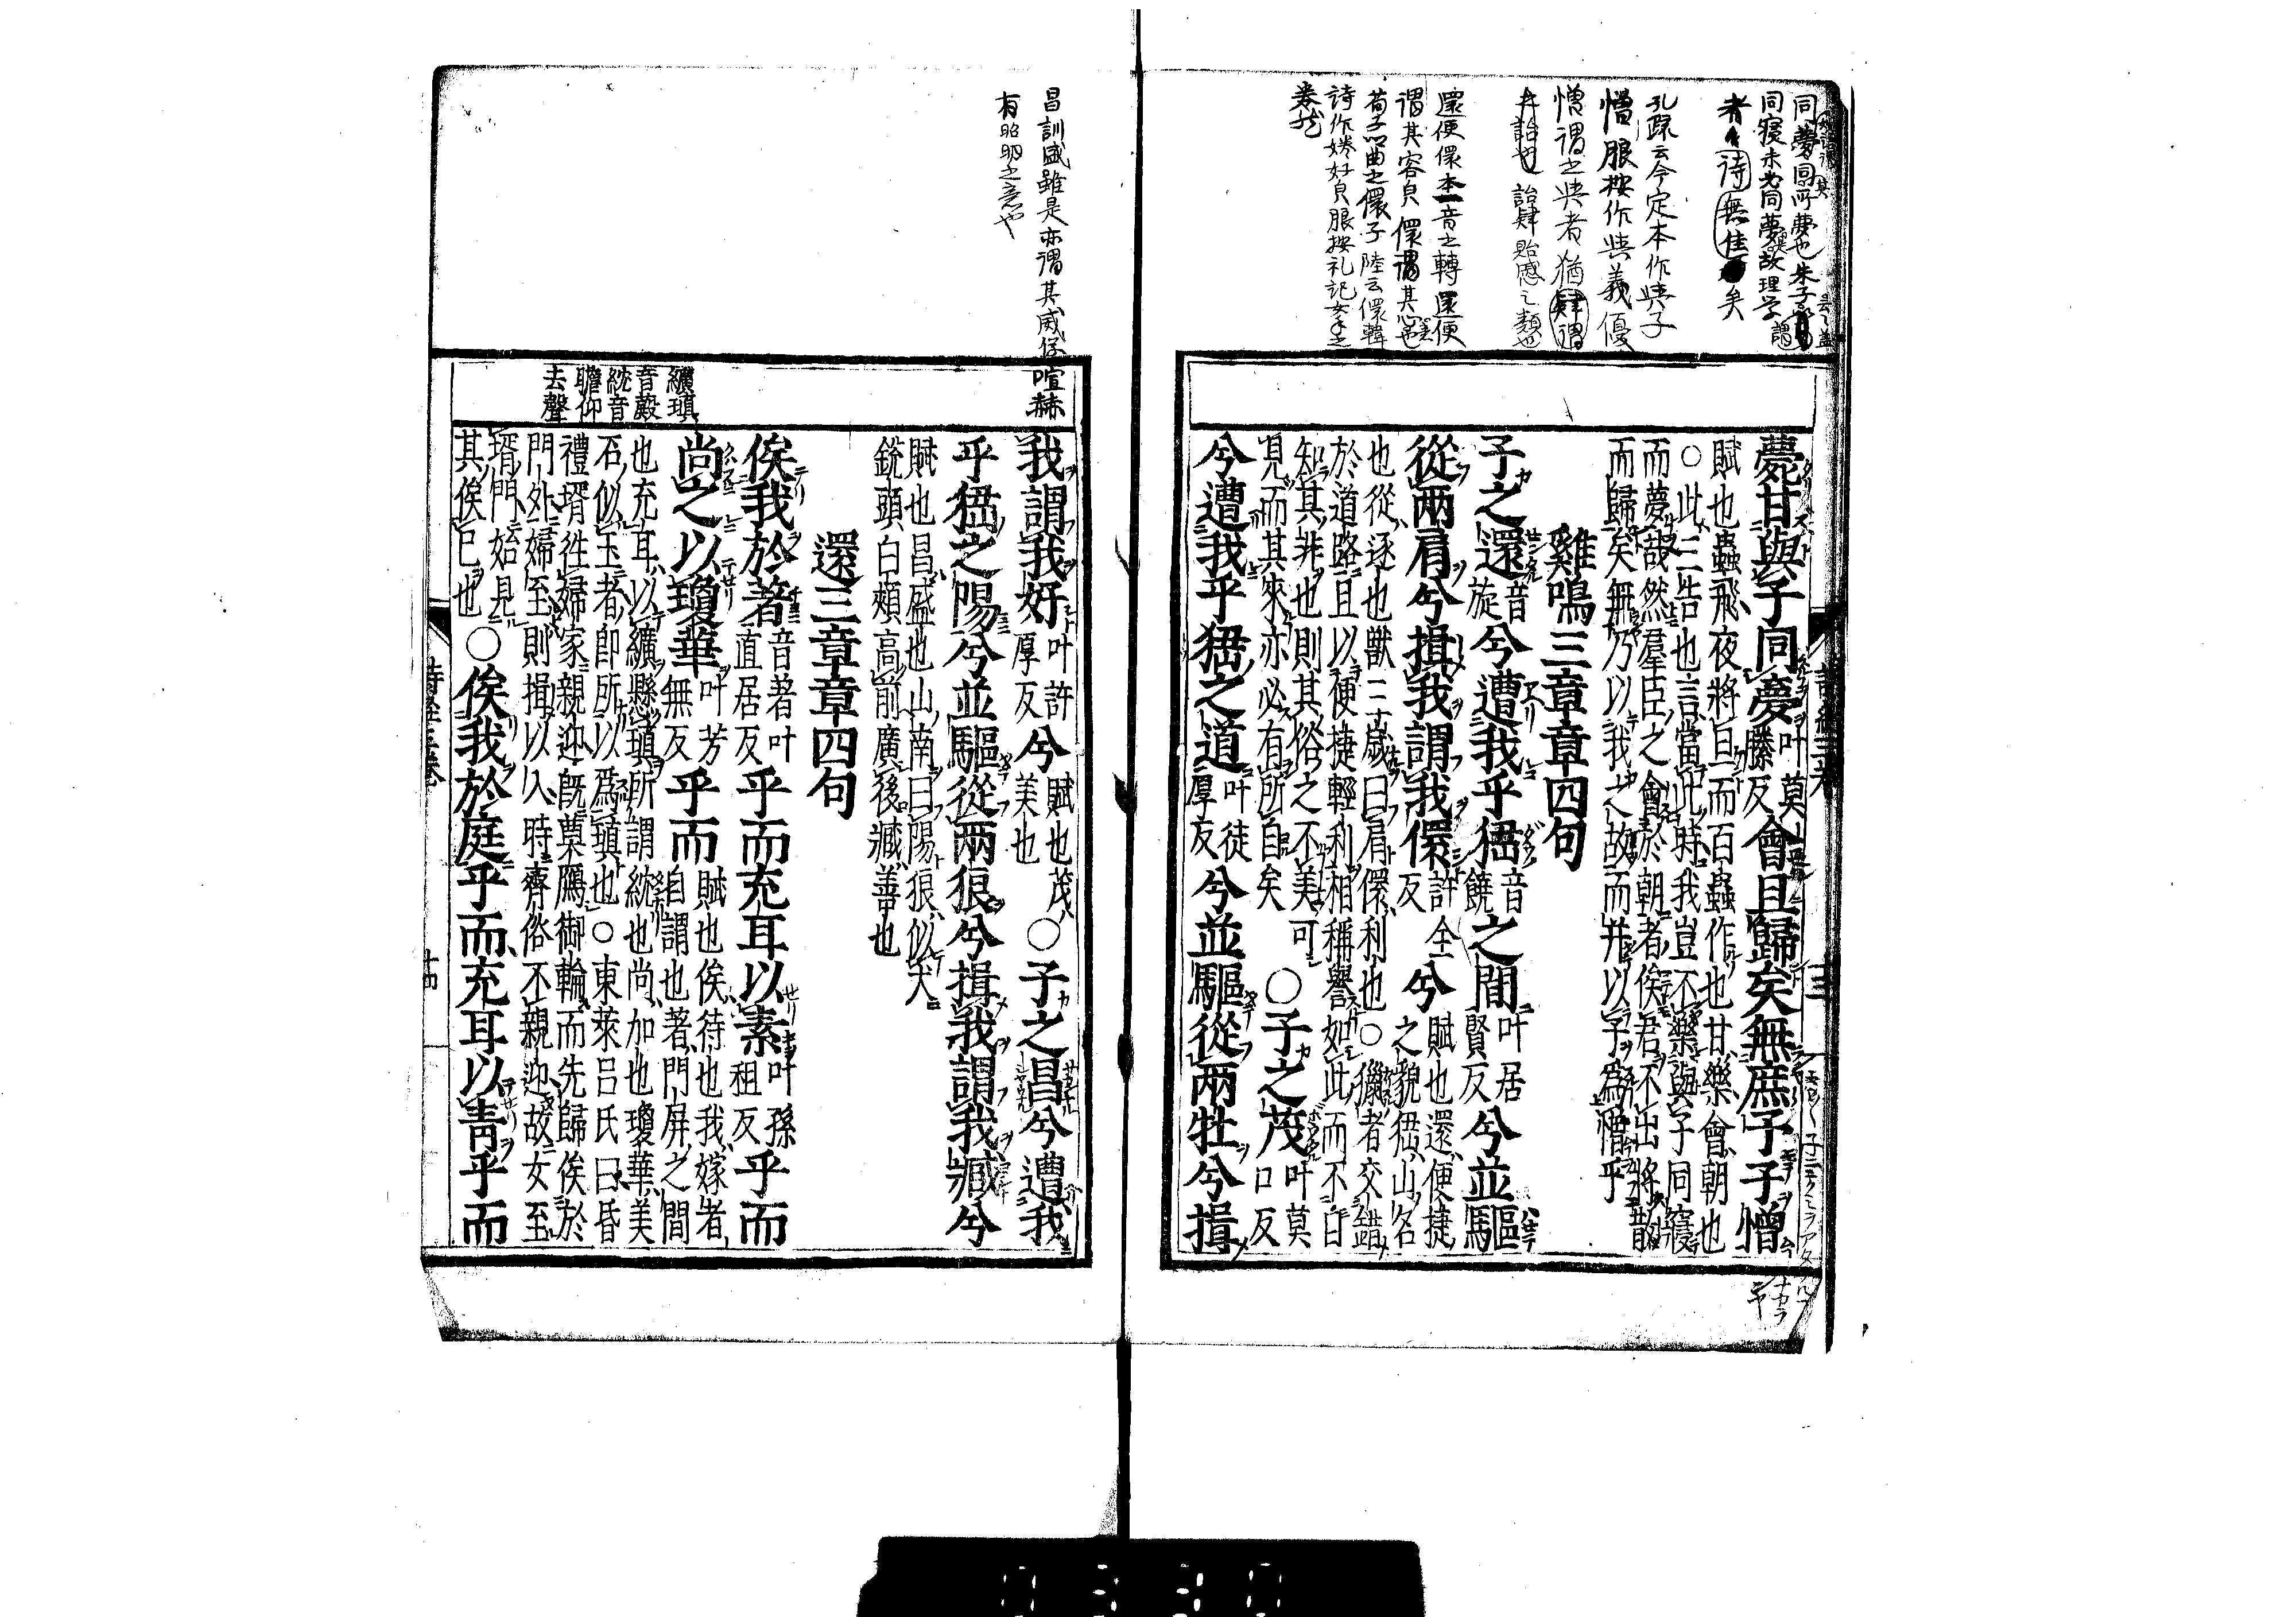 孔疏云今定本作與子
憎服按作與義優
憎謂之與者猶肄謂
詒也 詒肄貽慼之類也
還便儇本一音之轉還便
謂其容貝儇謂其心也
荀子曲之儇子陸云儇韓
詩作婘好貝服按礼記女手之
薨薨甘與子同夢叶莫滕反會且歸矣無庶予子憎
賦也蟲飛夜將旦而百蟲作也甘樂會朝也
○此三告也言當此時我豈不樂與子同寢
而夢哉然羣臣之會於朝者俟君不出將散
而歸矣無乃以我之故而并以子爲憎乎
雞鳴三章章四句
子之還音旋兮遭我乎峱音鐃之間叶居賢反兮並驅
從兩肩兮揖我謂我儇許全反兮賦也還便捷之貌峱山名
也從逐也獸三歲曰肩儇利也○獵者交錯
於道路且以便捷輕利相稱譽如此而不自
知其非也則其俗之不美可
見而其來亦必有所自矣○子之茂叶莫口反
兮遭我乎峱之道叶徒厚反兮並驅從兩牡兮揖
昌訓盛雖是亦謂其威儀喧赫
有昭明之意也
我謂我好叶許厚反兮賦也茂美也○子之昌兮遭我
乎峱之陽兮並驅從兩狼兮揖我謂我臧兮
賦也昌盛也山南曰陽狼似犬
銳頭白頰高前廣後臧善也
還三章章四句
纊瑱
音㲀
紞音
瞻仰
去聲
俟我於著音著叶直居反乎而充耳以素叶孫租反乎而
尚之以瓊華叶芳無反乎而賦也俟待也我嫁者自謂也著門屏之間
也充耳以纊懸瑱所謂紞也尚加也瓊華美
石似玉者卽所以爲瑱也○東萊呂氏曰昏
禮壻徃婦家親迎旣奠鴈御輪而先歸俟於
門外婦至則揖以入時齊俗不親迎故女至
壻門始見
其俟已也○俟我於庭乎而充耳以靑乎而